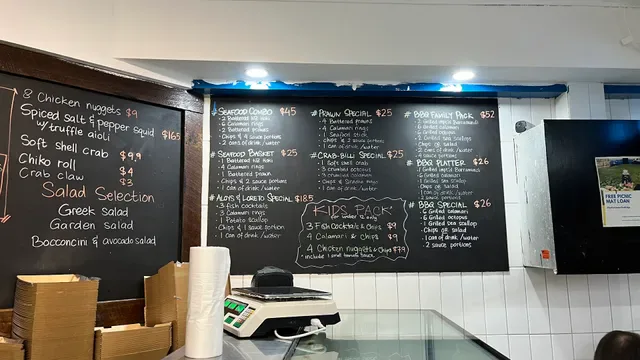 8 Chicken nuggets $9
Spiced salt & pepper squid
w/truffle aioli $16.5
Soft shell crab $9.9
Chiko roll $4
Crab claw $3
Salad Selection
Greek salad
Garden salad
Bocconcini & avocado salad
# SEAFOOD COMBO $45
· 4 Calamari rings
· 2 Battered prawns
· Chips & 2 sauce portions
· 2 cans of drink/water
# SEAFOOD BASKET $25
· 4 Calamari rings
· 1 Battered prawn
· Chips & 2 sauce portions
· 1 can of drink/water
# ALOYS & LORETO SPECIAL $18.5
· 3 Fish cocktails
· 3 Calamari rings
· 1 Potato scallop
· Chips & 1 sauce portion
· 1 can of drink/water
# PRAWN SPECIAL $25
· 4 Battered prawns
· 4 Calamari rings
· 1 Seafood stick
· Chips & 2 sauce portions
· 1 can of drink/water
# CRAB-BILL SPECIAL $25
· 1 Soft shell crab
· 3 crumbed calamari
· 1 can of drink/water
KIDS PACK
for under 12 only
3 Fish Cocktails & Chips $9
4 Calamari & Chips $9
4 Chicken nuggets & Chips $7.9
* include 1 small tomato sauce
# BBQ FAMILY PACK $52
· Chips or salad
· 2 cans of drink/water
# BBQ PLATTER $26
· Chips or salad
· 1 can of drink/water
# BBQ SPECIAL $26
· 5 Grilled calamari
· 5 Grilled octopus
· 1 Grilled sea scallop
· Chips or salad
· 1 can of drink/water
· 2 sauce portions
FREE PICNIC
MAT LOAN